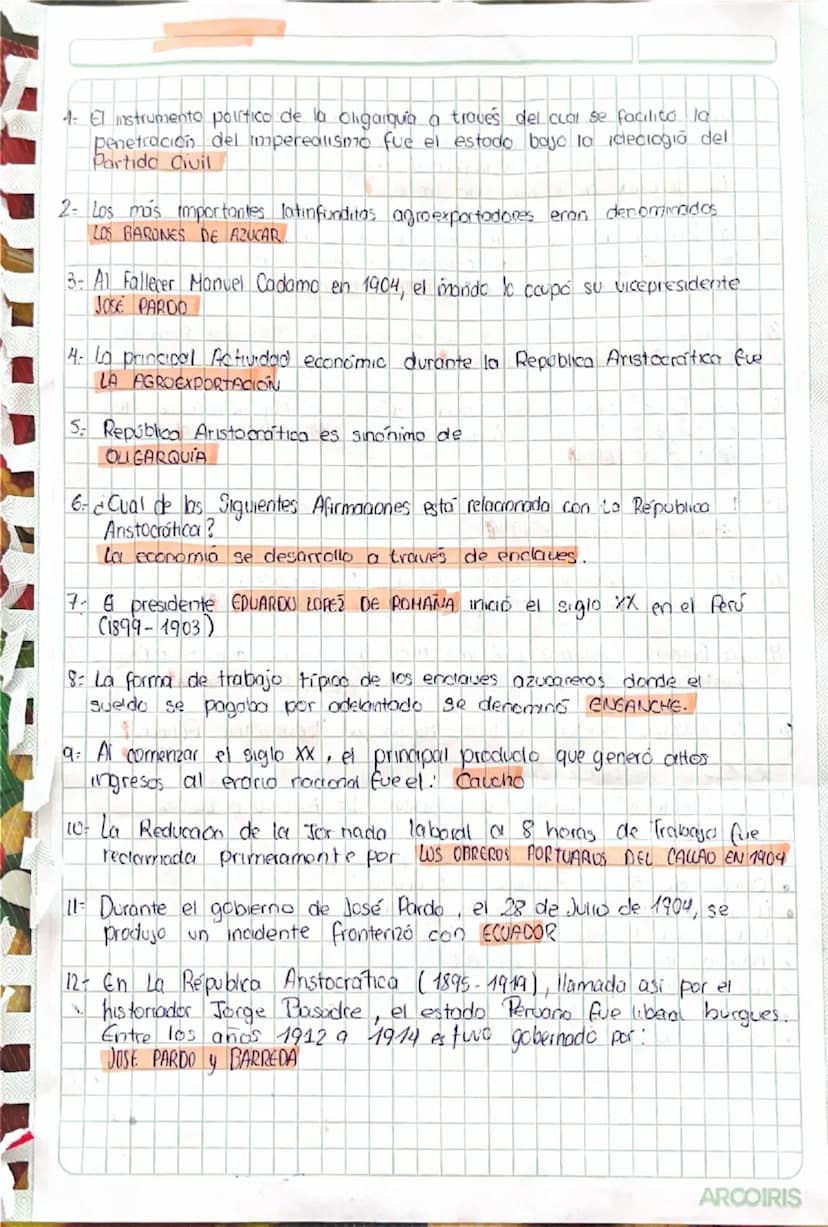 1- El instrumento político de la oligarquía a través del cual se facilitó la
penetración del imperealismo fue el estado bajo la ideología del
Partido Civil
2- Los más importantes latinfunditas agroexportadores eran denominados
LOS BARONES DE AZUCAR
3- Al Fallecer Manuel Cadamo en 1904, el mando lo ocupó su vicepresidente
JOSÉ PARDO
4- La principal Actividad economic durante la República Aristocrática fue
LA AGROEXPORTACIÓN
5- República Aristocrática es sinónimo de
OLIGARQUÍA
6- ¿Cual de las Siguientes Afirmaciones está relacionada con La Républica
Aristocrática?
La economía se desarrollo a través de enclaves.
7- El presidente EDUARDO LOPEZ DE ROMAÑA inició el siglo XX en el Perú
(1899-1903)
8- La forma de trabajo típico de los enclaves azucareros donde el
sueldo se pagaba por adelantado se denominó ENGANCHE.
9- Al comenzar el siglo XX, el principal producto que generó altos
ingresos al erario nacional fue el: Caucho
10- La Reducción de la Jornada laboral a 8 horas de Trabajo fue
reclamada primeramente por LOS OBREROS PORTUARIOS DEL CALLAO EN 1904
11- Durante el gobierno de José Pardo, el 28 de Julio de 1904, se
produjo un incidente fronterizó con ECUADOR
12- En La Républica Aristocrática (1895-1919), llamada así por el
historiador Jorge Basadre, el estado Peruano fue liberal burgues.
Entre los años 1912 a 1914 estuvo gobernado por:
JOSE PARDO y BARREDA
ARCOIRIS